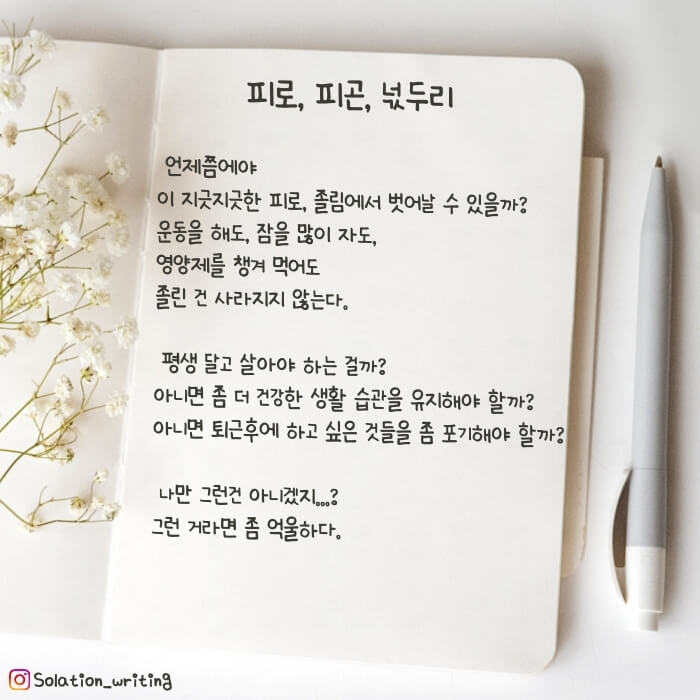 피로, 피곤, 넋두리
언제쯤에야
이 지긋지긋한 피로, 졸림에서 벗어날 수 있을까?
운동을 해도, 잠을 많이 자도,
영양제를 챙겨 먹어도
졸린 건 사라지지 않는다.
평생 달고 살아야 하는 걸까?
아니면 좀 더 건강한 생활 습관을 유지해야 할까?
아니면 퇴근후에 하고 싶은 것들을 좀 포기해야 할까?
나만 그런건 아니겠지...?
그런 거라면 좀 억울하다.
Solation_writing